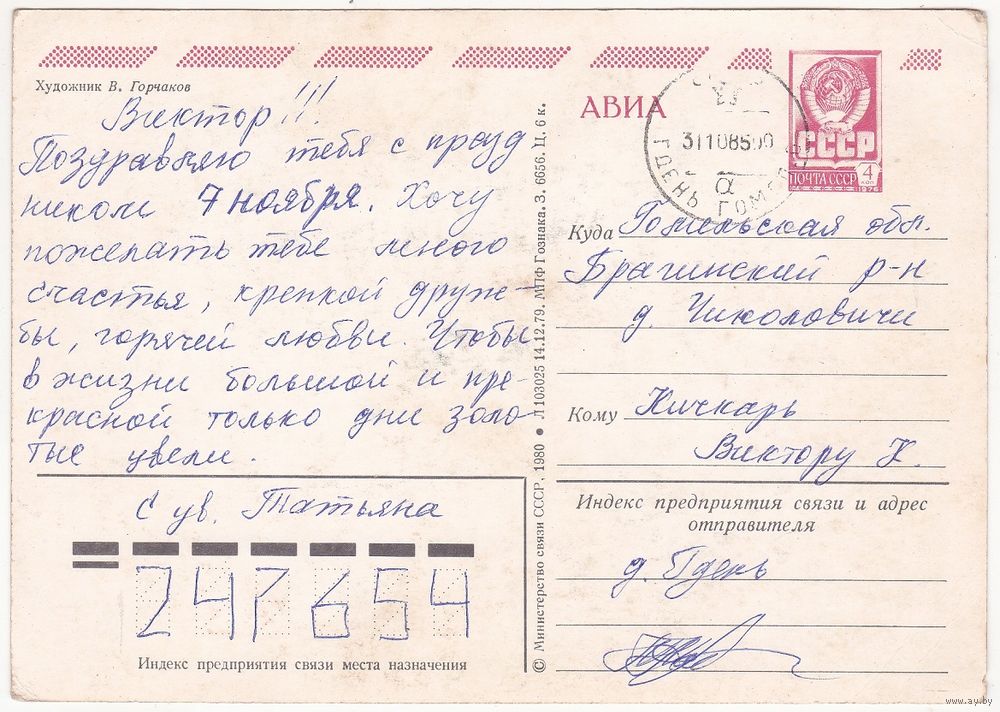 Художник В. Горчаков
Виктор!!!
Поздравляю тебя с празд
ником 7 ноября. Хочу
пожелать тебе много
счастья, крепкой друж-
бы, горячей любви. Чтобы
в жизни большой и пре-
красной только дни золо-
тые цвели.
С ув. Татьяна
247654
Индекс предприятия связи места назначения
© Министерство связи СССР, 1980 ● Л 103025 14.12.79. МПФ Гознака. З. 6656. Ц. 6 к.
АВИА
СССР
ПОЧТА СССР
4
КОП
1978
311085
ГДЕНЬ ГОМЕЛ
α
Куда Гомельская обл.
Брагинский р-н
д. Чиколовичи
Кому Кичкарь
Виктору К.
Индекс предприятия связи и адрес
отправителя
д. Гдень
www.ay.by